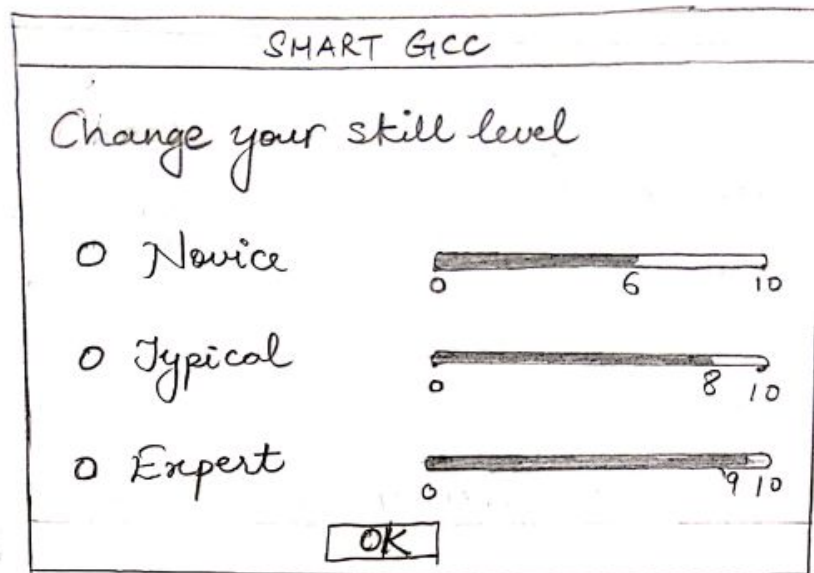 SMART GCC
Change your skill level
O Novice
0 6 10
O Typical
0 8 10
O Expert
0 9 10
OK